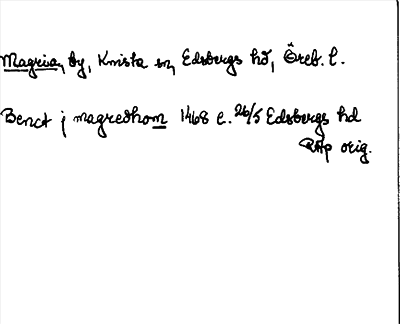 Magria, by, Knista sn, Edsbergs hd, Öreb. l.
Benct j magredhom 1468 e. 26/5 Edsbergs hd
RAp orig.